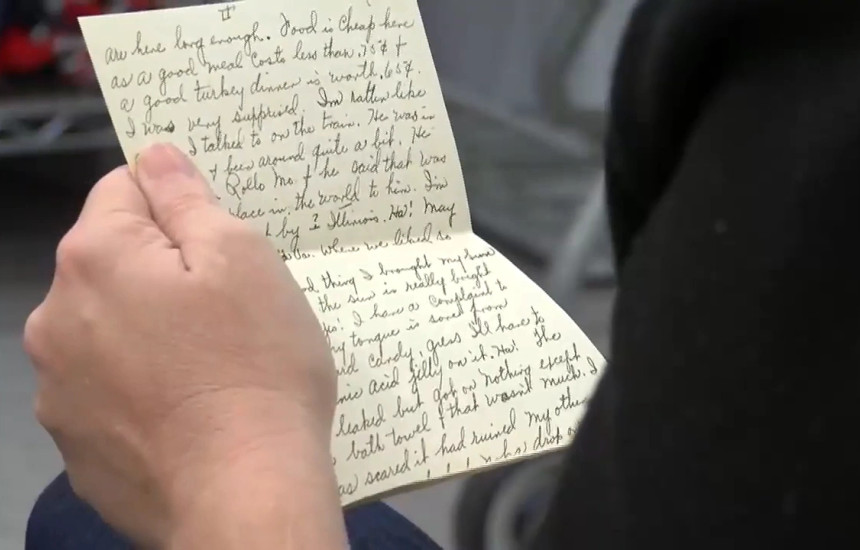 II
are here long enough. Food is cheap here
as a good meal costs less than .75¢ +
a good turkey dinner is worth .65¢.
I was very supprised. I'm ratten like
I talked to on the train. He was in
+ been around quite a bit. He
Rollo Mo. + he said that was
place in the world to him. I'm
by Illinois. Ha! May
where we liked so
thing I brought my
the sun is really bright
yes! I have a complaint to
my tongue is sore from
candy, guess I'll have to
acid jelly on it. Ha! The
leaked but got on nothing except
bath towel + that wasn't much. I
as scared it had ruined my other
drop